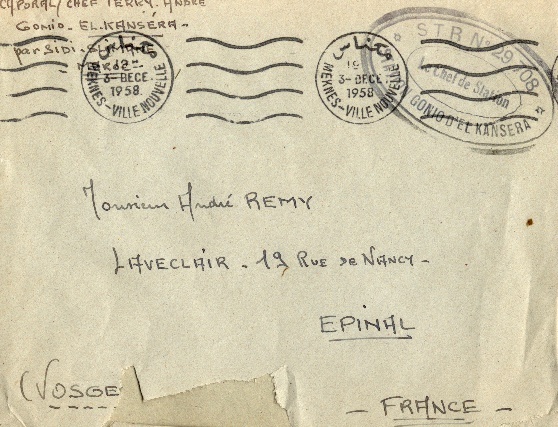 CAPORAL/CHEF TERRY. ANDRÉ
GONIO. EL.KANSÉRA -
par SIDI.
MAROC
مكناس
3-DECE
1958
MEKNES-VILLE NOUVELLE
مكناس
19
3-DECE
1958
MEKNES-VILLE NOUVELLE
STR N° 29.708
Le Chef de Station
GONIO D'EL KANSERA
Monsieur André REMY
LAVECLAIR - 19 RUE DE NANCY -
EPINAL
(VOSGE
- FRANCE -